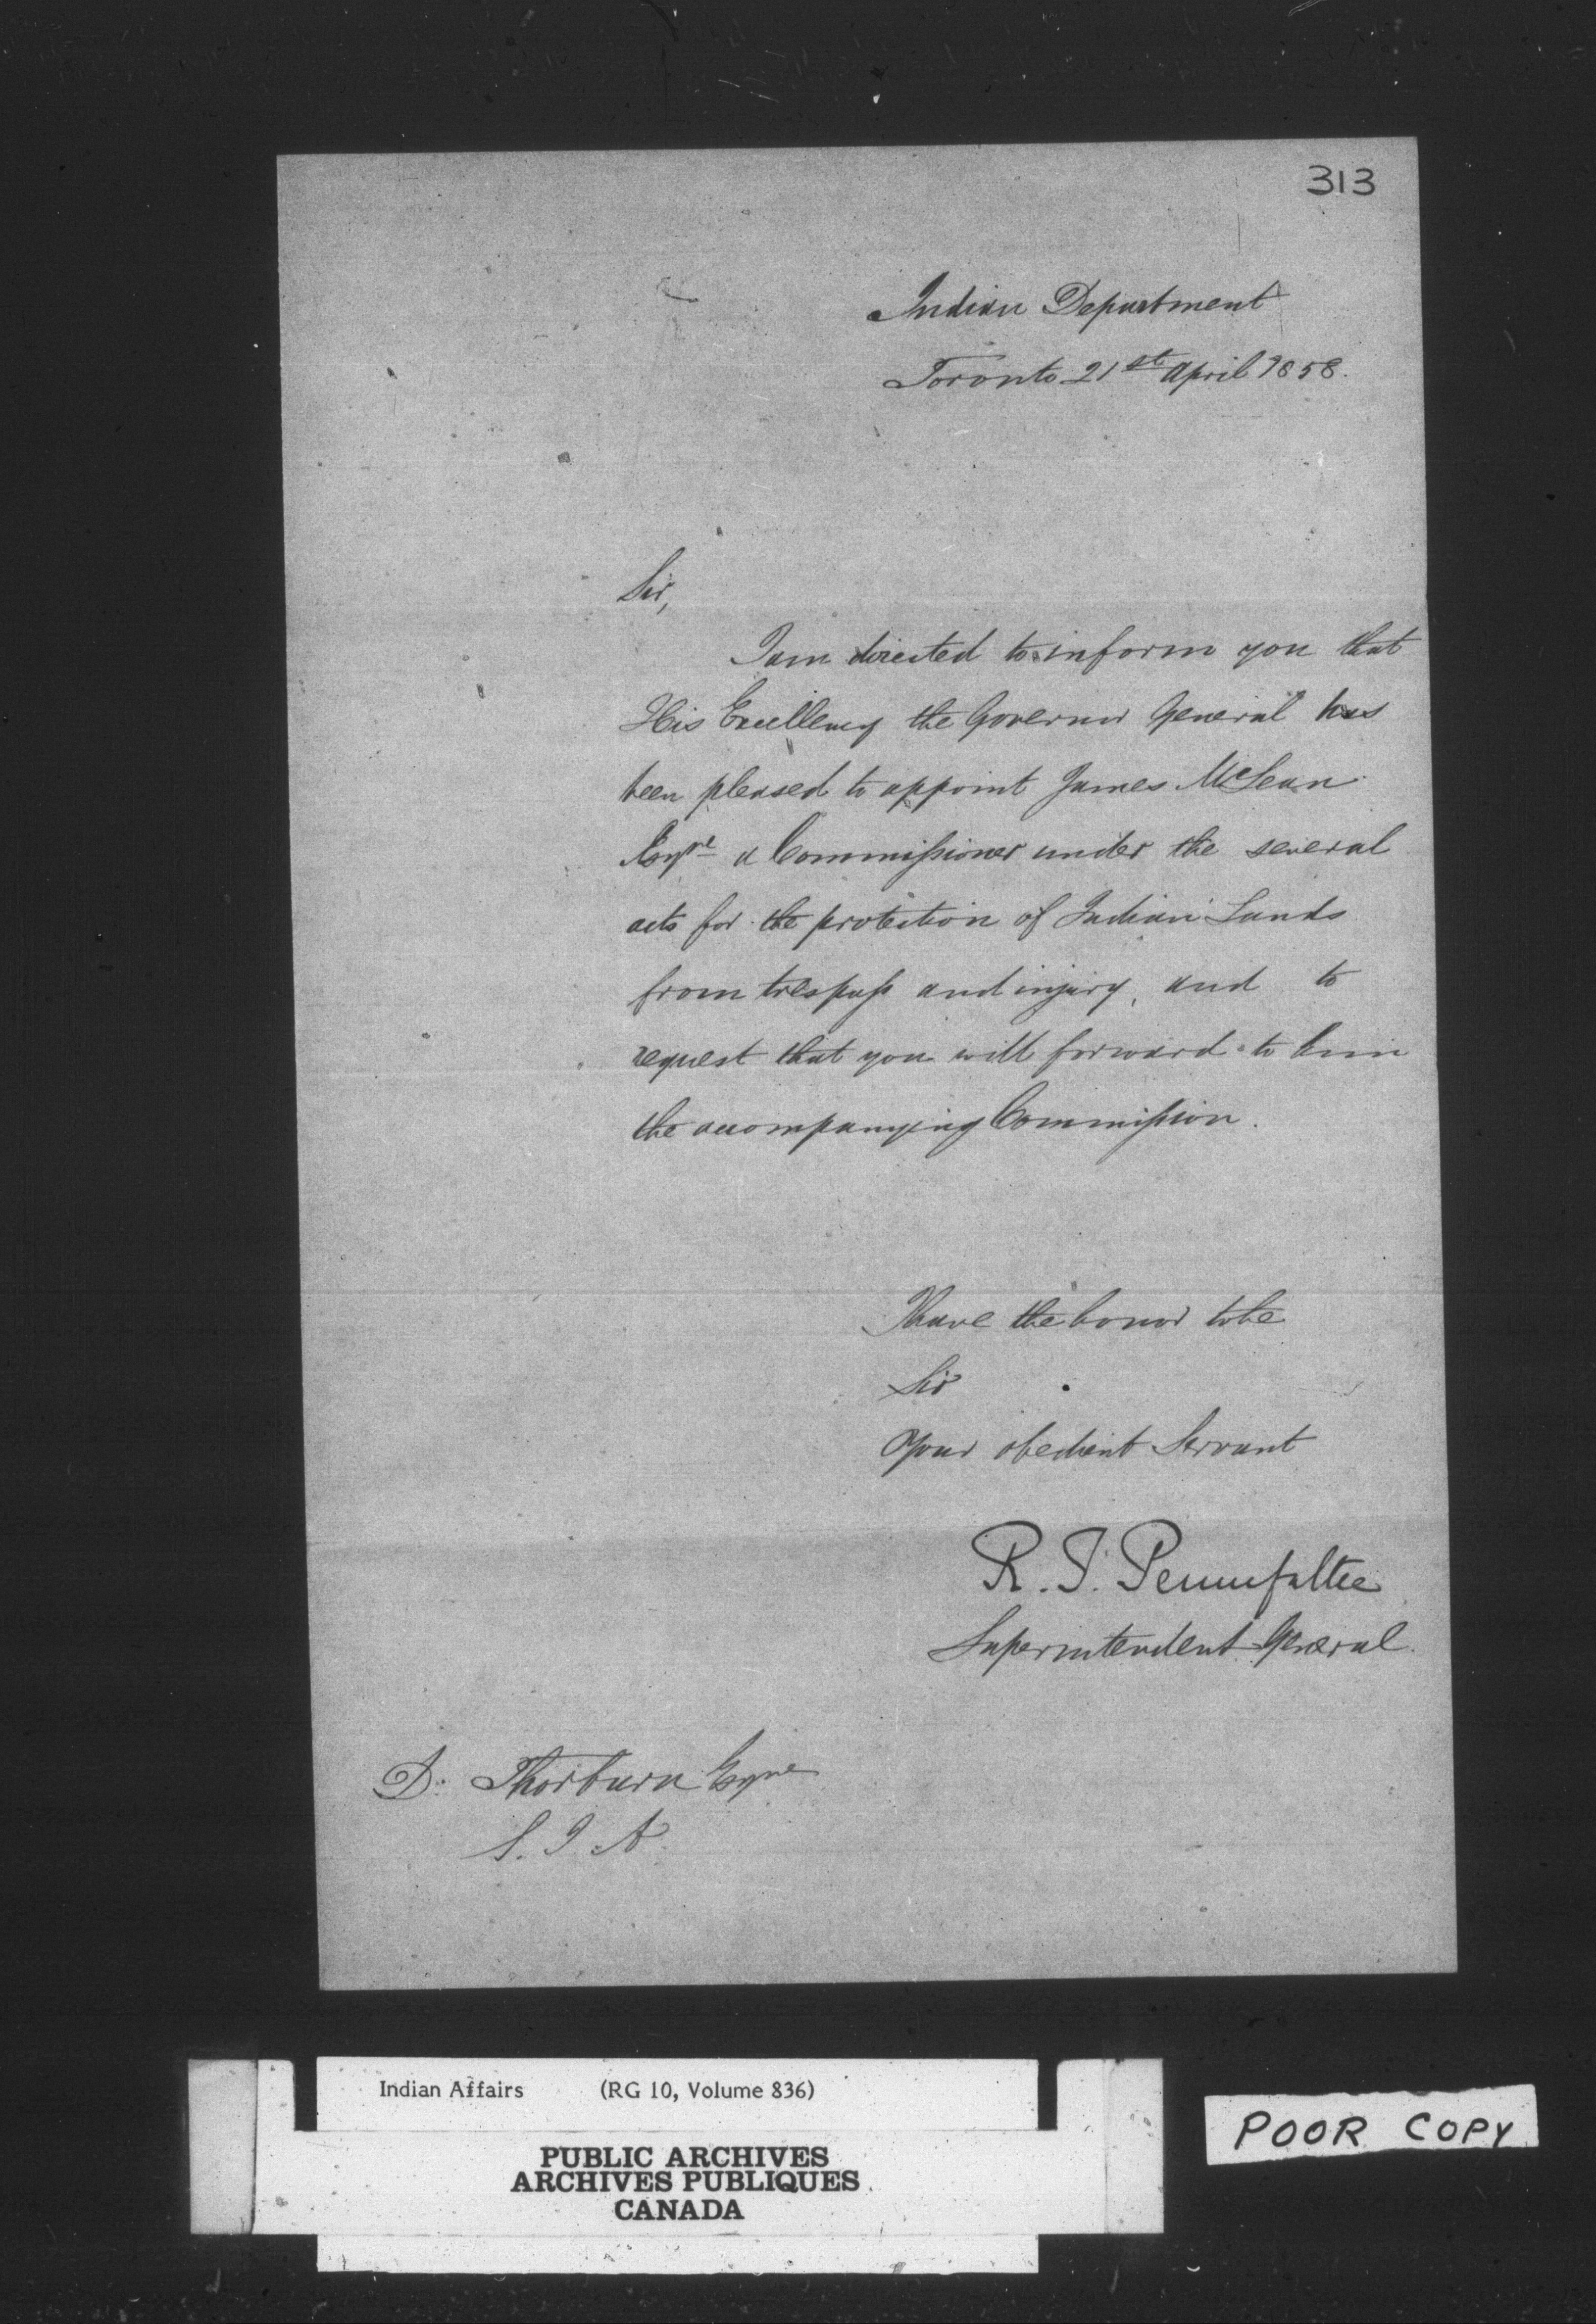 313
Indian Department
Toronto 21st April 1858.
Sir,
I am directed to inform you that
His Excellency the Governor General has
been pleased to appoint James McLean
Esqre a Commissioner under the several
acts for the protection of Indian Lands
from trespass and injury, and to
request that you will forward to him
the accompanying Commission.
I have the honor to be
Sir
Your obedient Servant
R. T. Pennefather
Superintendent General
D. Thorburn Esqre
S. I. A.
Indian Affairs (RG 10, Volume 836)
PUBLIC ARCHIVES
ARCHIVES PUBLIQUES
CANADA
POOR COPY